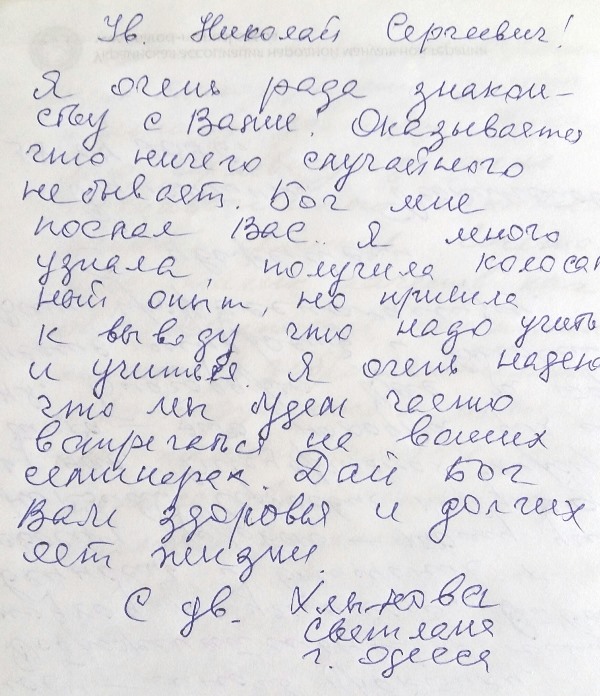 Ув. Николай Сергеевич!
Я очень рада знаком-
ству с Вами! Оказывается
что ничего случайного
не бывает. Бог мне
послал Вас. Я много
узнала, получила колосал
ный опыт, но пришла
к выводу что надо учить
и учиться. Я очень надеюс
что мы будем часто
встречаться на ваших
семинарах. Дай Бог
Вам здоровья и долгих
лет жизни.
С ув.
Светлана
г. Одесса